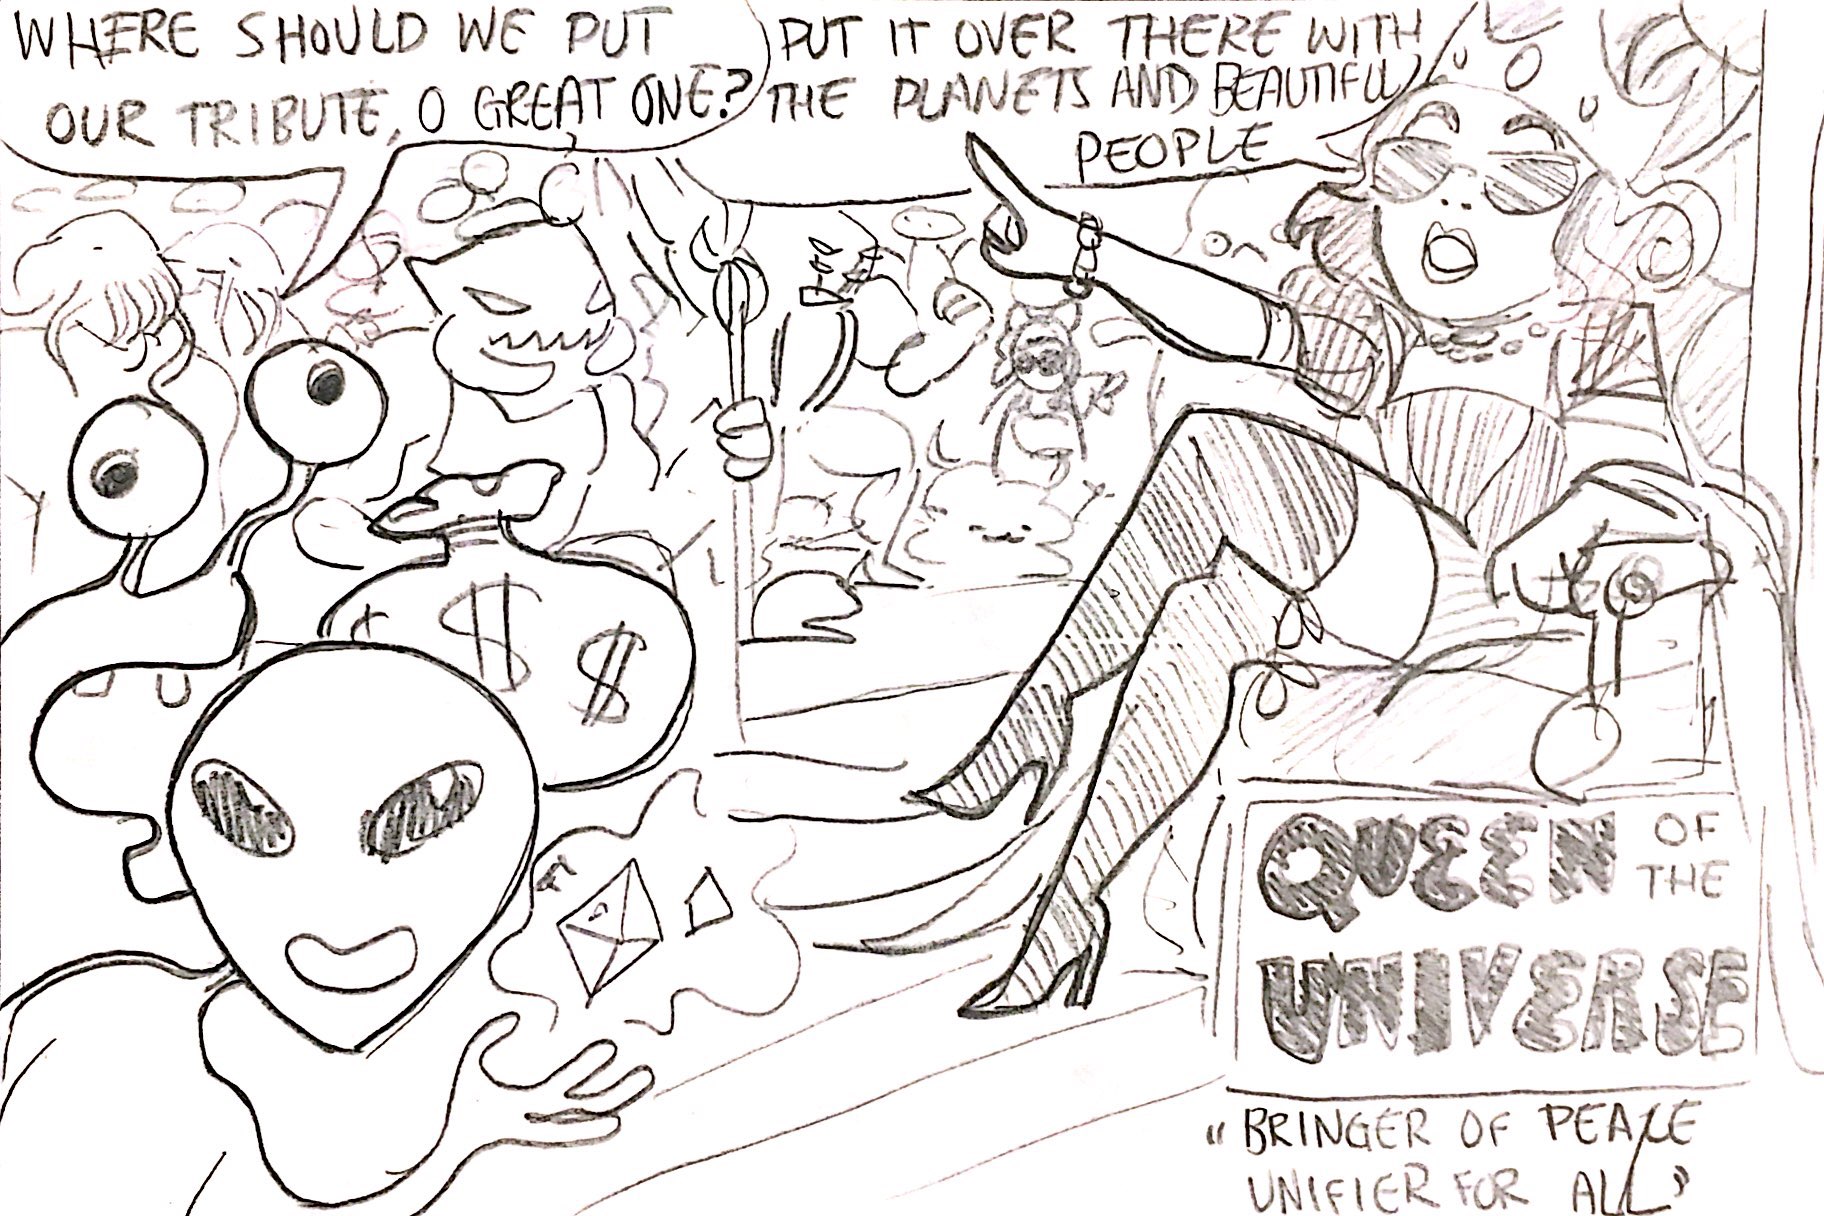 WHERE SHOULD WE PUT
OUR TRIBUTE, O GREAT ONE?
PUT IT OVER THERE WITH
THE PLANETS AND BEAUTIFUL
PEOPLE
$ $
QUEEN OF
THE
UNIVERSE
"BRINGER OF PEACE
UNIFIER FOR ALL"